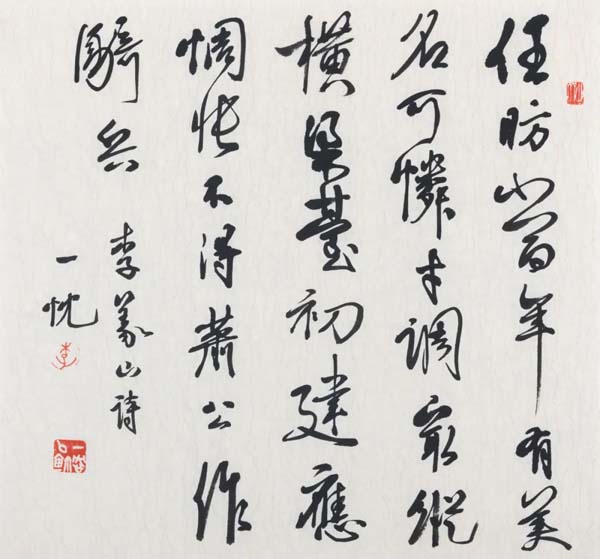 任昉當年有美
名可憐才調最縱
橫梁臺初建應
惆悵不得蕭公作
騎兵
李義山詩
一忱
李